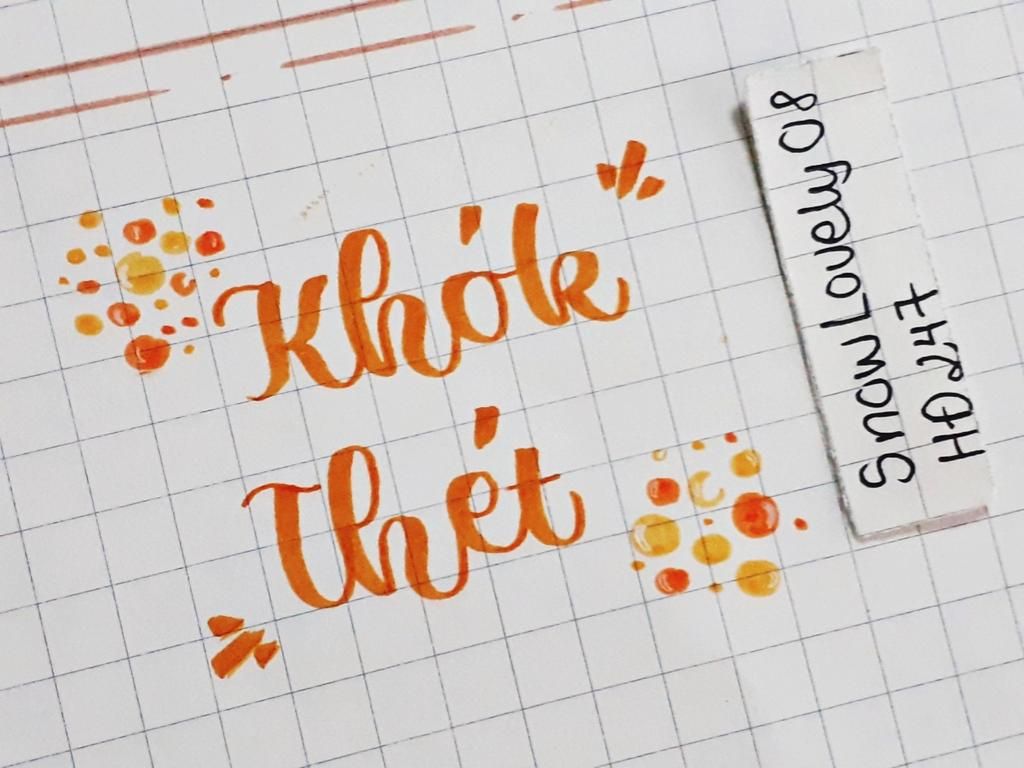 Khók
Thét
Snow Lovely 08
HĐ 247